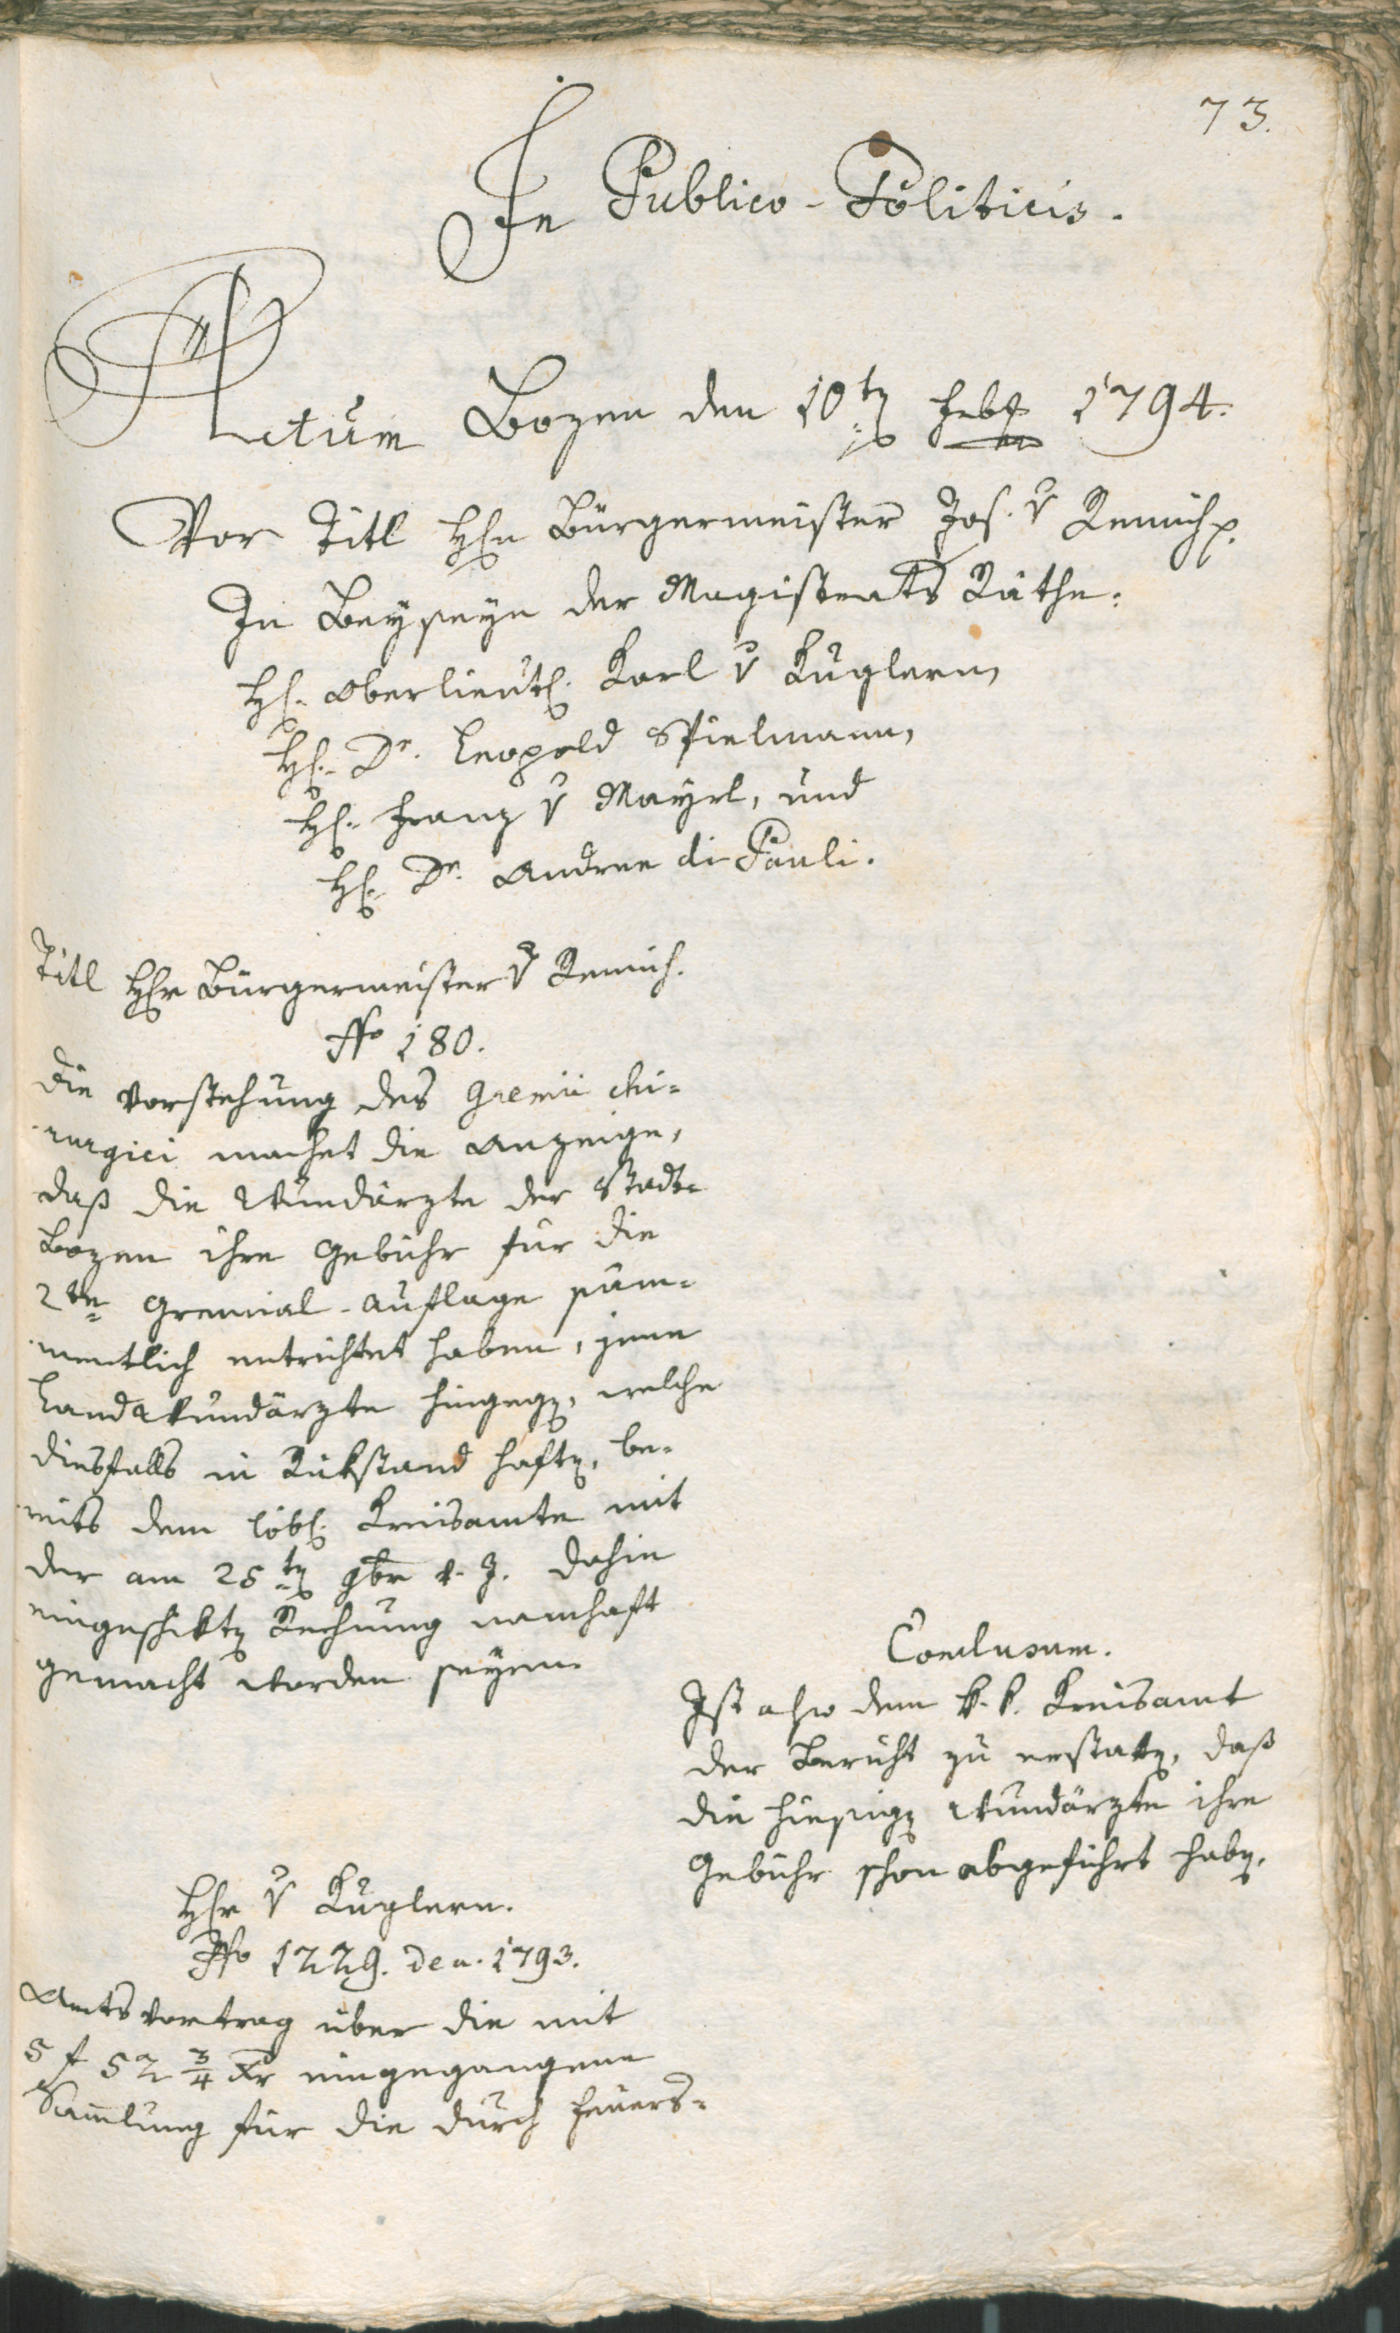 73.
In Publico-Politicis.
Actum Bozen den 10t. Feb. 1794.
Vor Titl H. Bürgermeister Jos. v Remich.
In Beyseyn der Magistrats Räthe:
H. Oberlieut. Karl v Kuglern,
H. Dr. Leopold Spielmann,
H. Franz v Mayrl, und
H. Dr. Andree di Pauli.
Titl Hr Bürgermeister v Remich.
No 180.
Die Vorstehung des Gremii chi-
rurgici machet die Anzeige,
daß die Wundärzte der Stadt
Bozen ihre Gebühr für die
2te Gremial-Auflage säm-
mentlich entrichtet haben, jene
Landwundärzte hingeg., welche
diesfalls in Rükstand haft., be-
reits dem löbl. Kreisamte mit
der am 25t. 9br v. J. dahin
eingeschikt. Rechnung namhaft
gemacht worden seyen.
Conclusum.
Ist also dem k. k. Kreisamt
der Bericht zu erstatt., daß
die hiesig. Wundärzte ihre
Gebühr schon abgeführt hab.
Hr v Kuglern.
No 1229. de a. 1793.
Amtsvortrag über die mit
5 f 52 3/4 Xr eingegangene
Samlung für die durch Feuers-